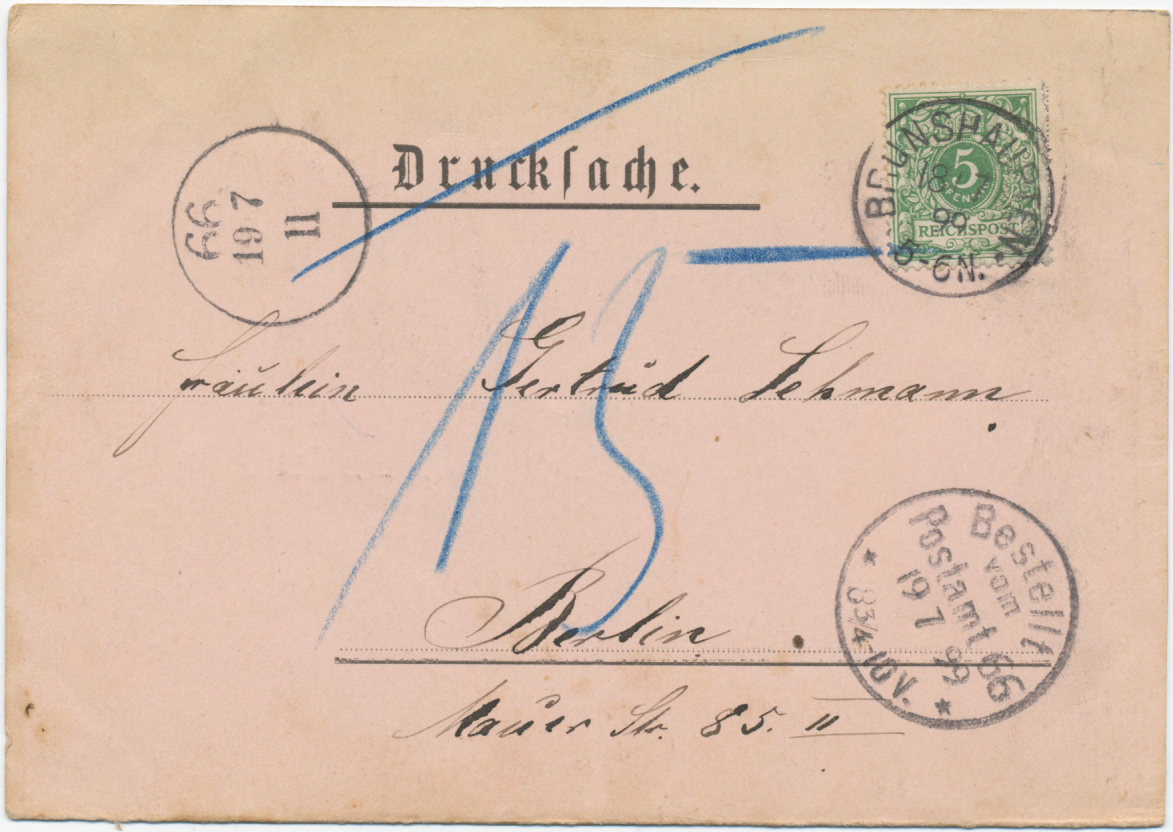 Drucksache.
BRUNSHAUPTEN
18 7
99
5-6N.
5
PFENNIG
REICHSPOST
66
19 7
11
15
Fräulein Gertrud Lehmann
Berlin
Mauer Str. 85. II
Bestellt
vom
Postamt 66
19 7 99
8¾-10V.